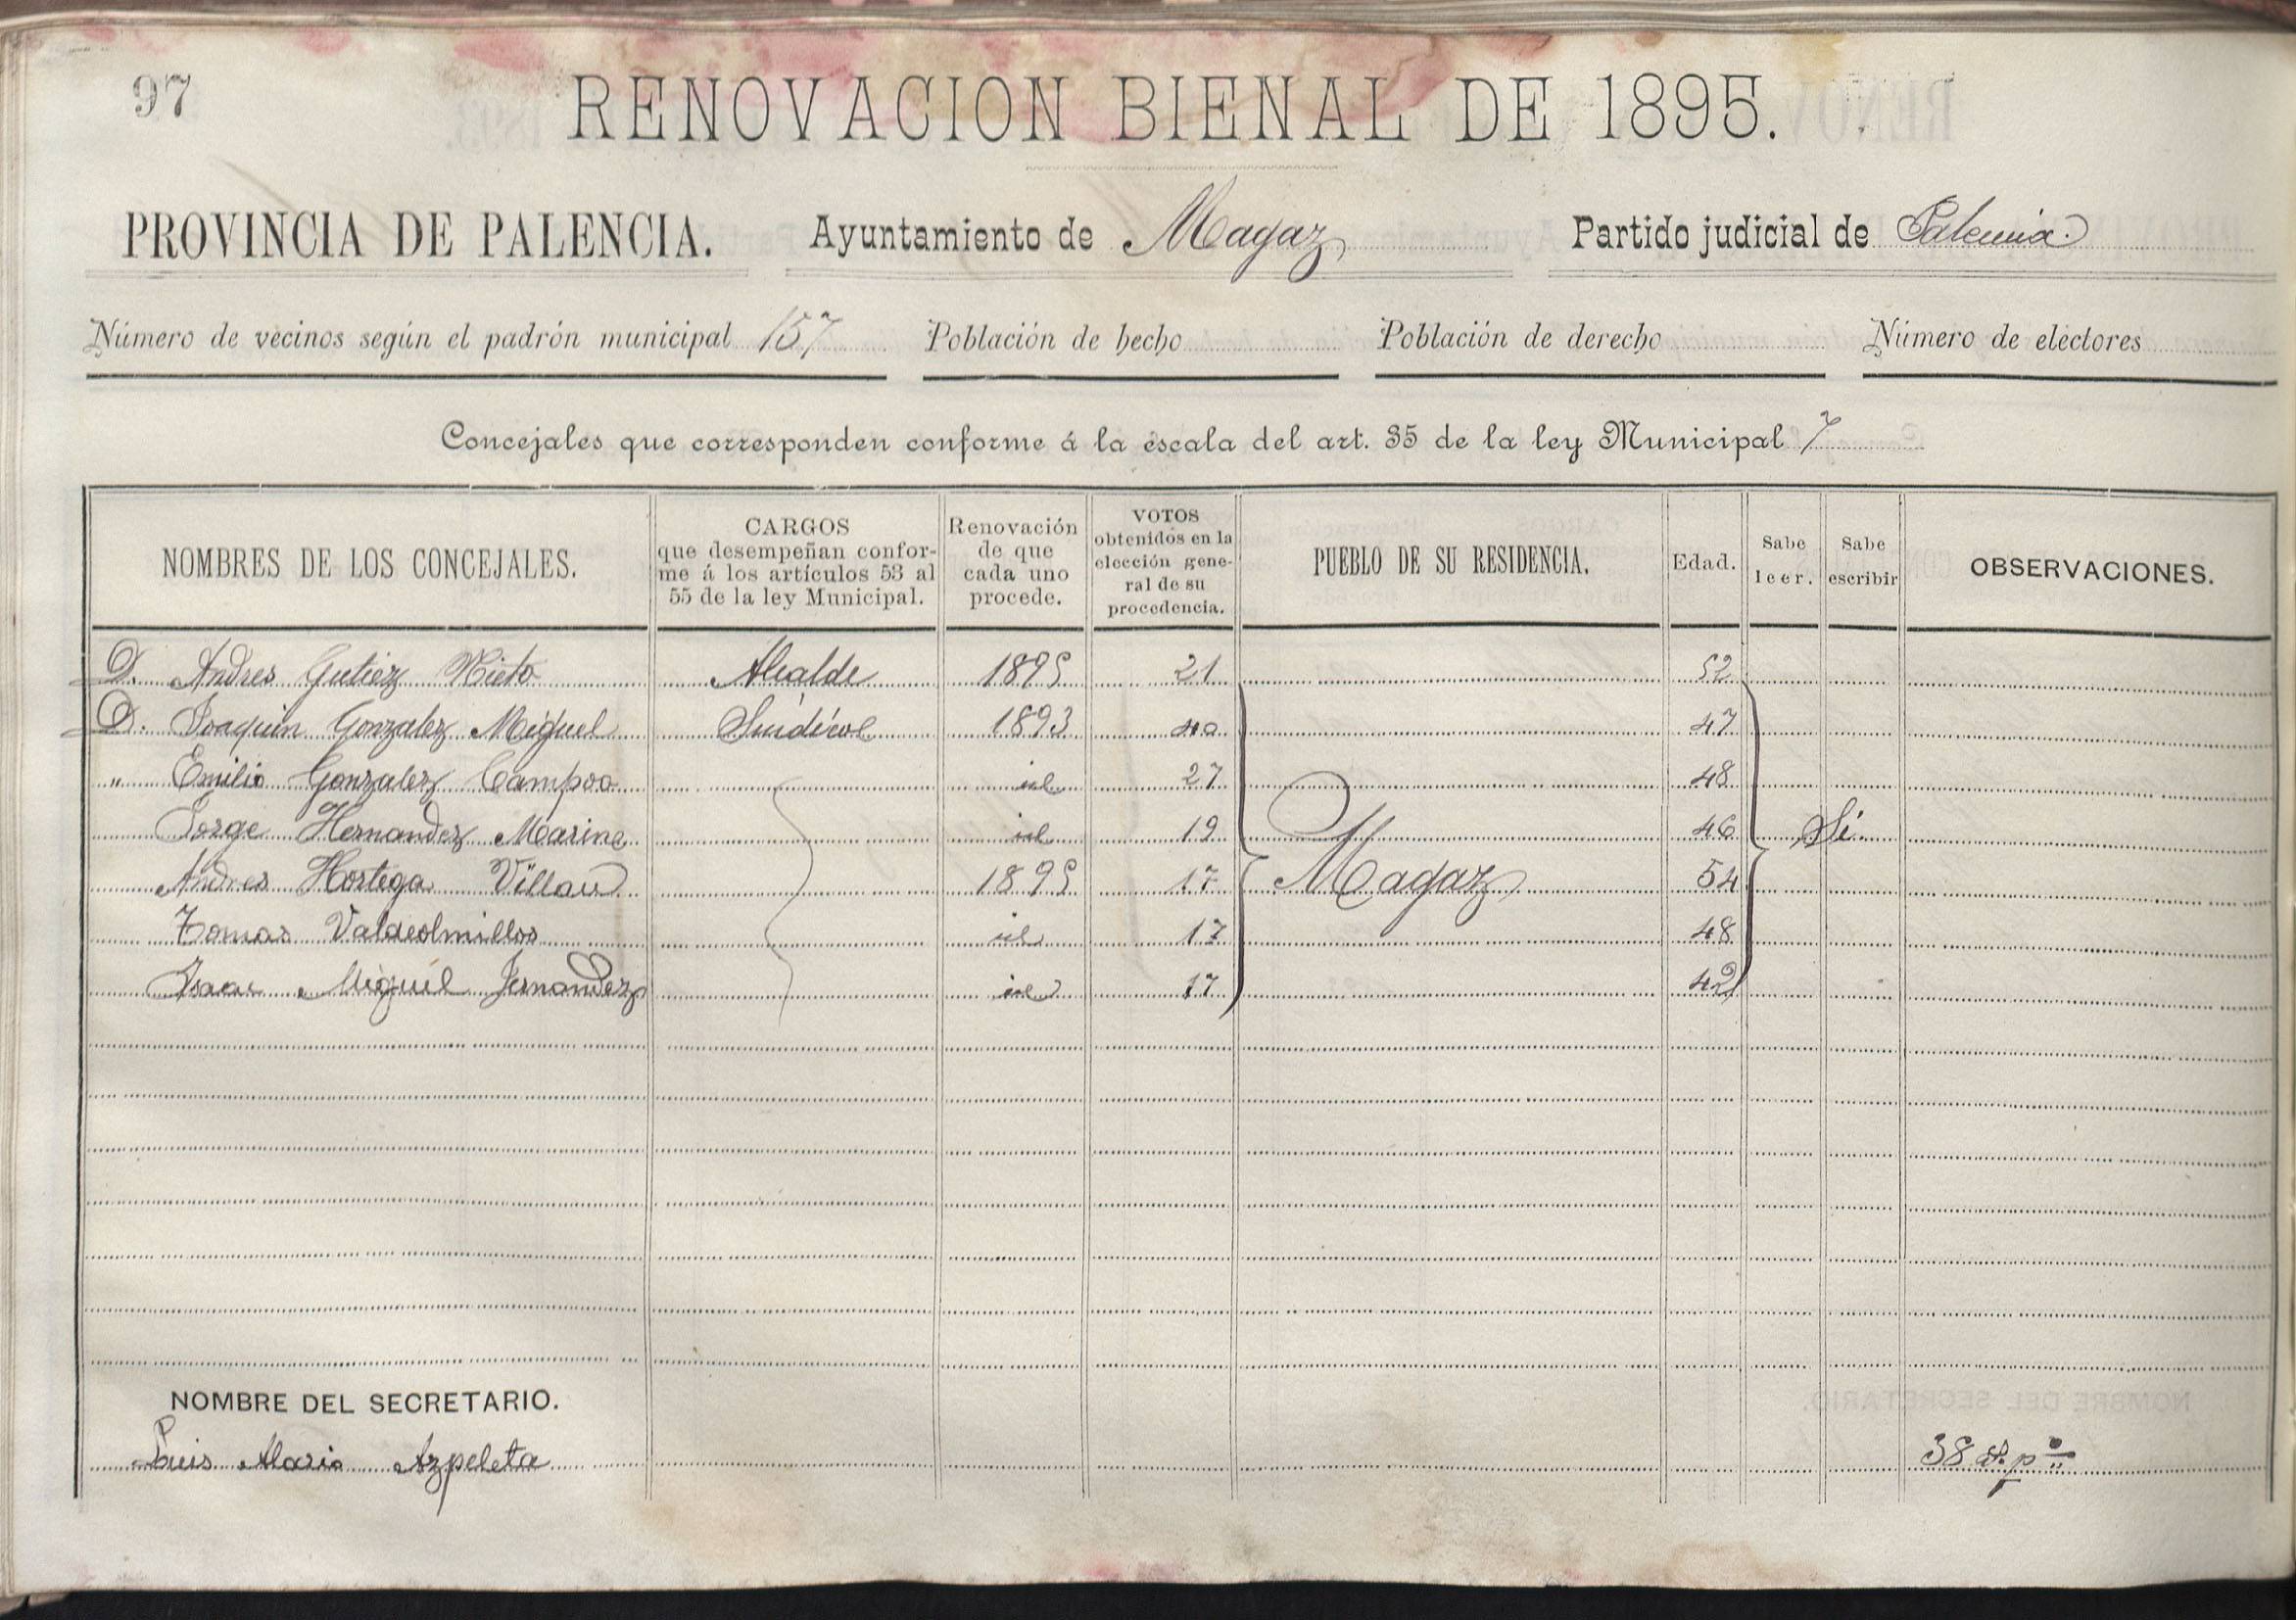 97
RENOVACION BIENAL DE 1895.
PROVINCIA DE PALENCIA. Ayuntamiento de Magaz Partido judicial de Palencia.
Número de vecinos según el padrón municipal 157 Población de hecho Población de derecho Número de electores
Concejales que corresponden conforme á la escala del art. 35 de la ley Municipal 7
NOMBRES DE LOS CONCEJALES. CARGOS que desempeñan conforme á los artículos 53 al 55 de la ley Municipal. Renovación de que cada uno procede. VOTOS obtenidos en la elección general de su procedencia. PUEBLO DE SU RESIDENCIA. Edad. Sabe leer. Sabe escribir OBSERVACIONES.
D. Andres Gutierz Nieto Alcalde 1895 21 52
D. Joaquin Gonzalez Miguel 1893 40 47
" Emilio Gonzalez Campoo id 27 48
Jorge Hernandez Marine id 19 46 Sí
Andres Hortega 1895 17 Magaz 54
Tomas Valdeolmillos id 17 48
Isaac Miguel Fernandez id 17 42
NOMBRE DEL SECRETARIO.
Luis Maria Azpeleta 38